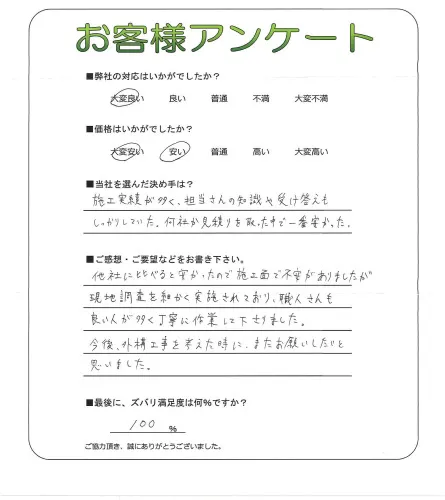 お客様アンケート
■弊社の対応はいかがでしたか？
大変良い 良い 普通 不満 大変不満
■価格はいかがでしたか？
大変安い 安い 普通 高い 大変高い
■当社を選んだ決め手は？
施工実績が多く、担当さんの知識や受け答えも
しっかりしていた。何社か見積りを取った中で一番安かった。
■ご感想・ご要望などをお書き下さい。
他社に比べると安かったので施工面で不安がありましたが
現地調査を細かく実施されており、職人さんも
良い人が多く丁寧に作業して下さりました。
今後、外構工事を考えた時に、またお願いしたいと
思いました。
■最後に、ズバリ満足度は何%ですか？
100 %
ご協力頂き、誠にありがとうございました。